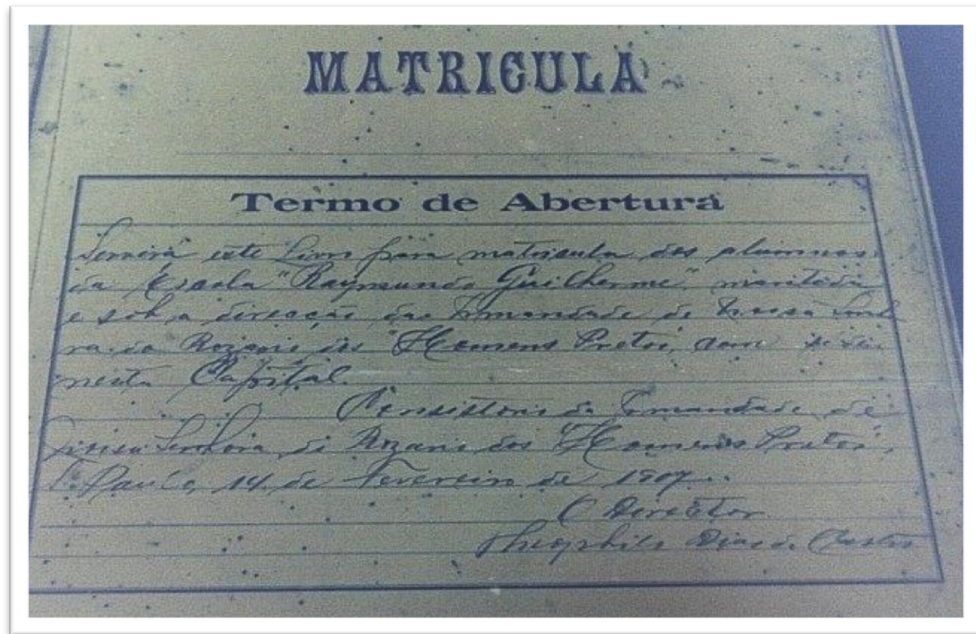 MATRICULA
Termo de Abertura
Servirá este Livro para matricula dos alumnos
da Escola "Raymundo Guilherme", mantida
e sob a direcção da Irmandade de Nossa Senho
ra do Rozario dos "Homens Pretos", com séde
nesta Capital.
Consistorio da Irmandade de
Nossa Senhora do Rozario dos "Homens Pretos",
S. Paulo, 14 de Fevereiro de 1907.
O Director
Theophilo Dias de Castro